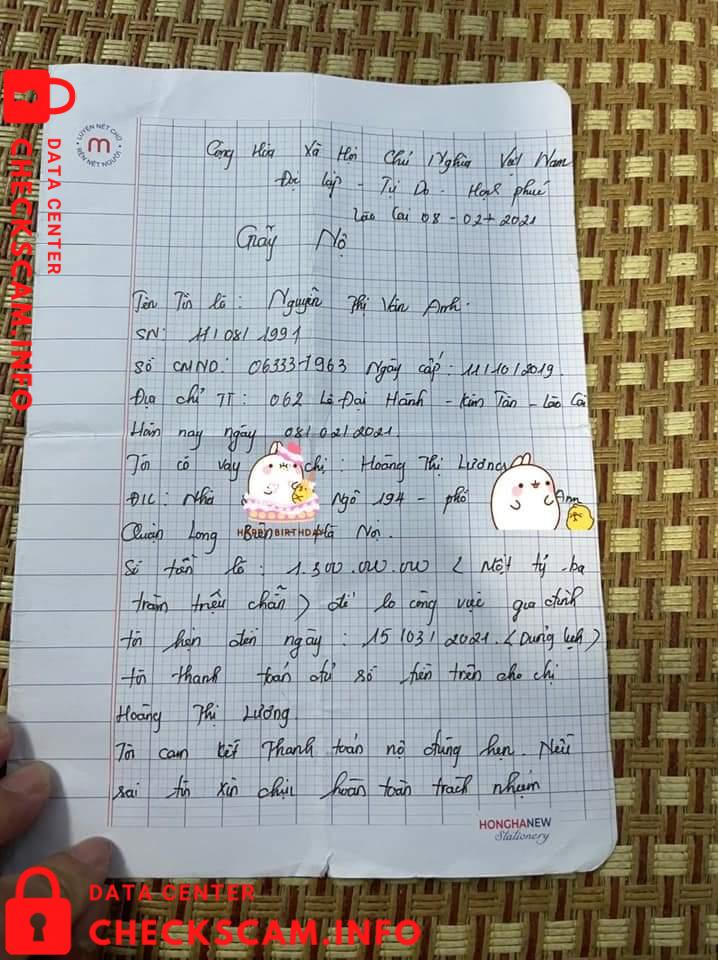 LUYỆN NÉT CHỮ
RÈN NẾT NGƯỜI
DATA CENTER
CHECKSCAM.INFO
Cộng Hòa Xã Hội Chủ Nghĩa Việt Nam
Độc lập - Tự Do - Hạnh phúc
Lào Cai 08-02-2021
Giấy Nợ
Tên Tôi là: Nguyễn Thị Vân Anh.
SN: 11/08/1991
Số CMND: 063337963 Ngày cấp: 11/10/2019.
Địa chỉ TT: 062 Lê Đại Hành - Kim Tân - Lào Cai
Hôm nay ngày 08/02/2021.
Tôi có vay chị: Hoàng Thị Lương
Đ/C: Nhà Ngõ 194 - phố
Quận Long Biên Hà Nội.
HAPPY BIRTHDAY
Số tiền là: 1.300.000.000 (Một tỷ ba
trăm triệu chẵn) để lo công việc gia đình
tôi hẹn đến ngày: 15/03/2021. (Dương lịch)
tôi thanh toán đủ số tiền trên cho chị
Hoàng Thị Lương.
Tôi cam kết Thanh toán nợ đúng hẹn. Nếu
sai tôi xin chịu hoàn toàn trách nhiệm
HONGHANEW
Stationery
DATA CENTER
CHECKSCAM.INFO